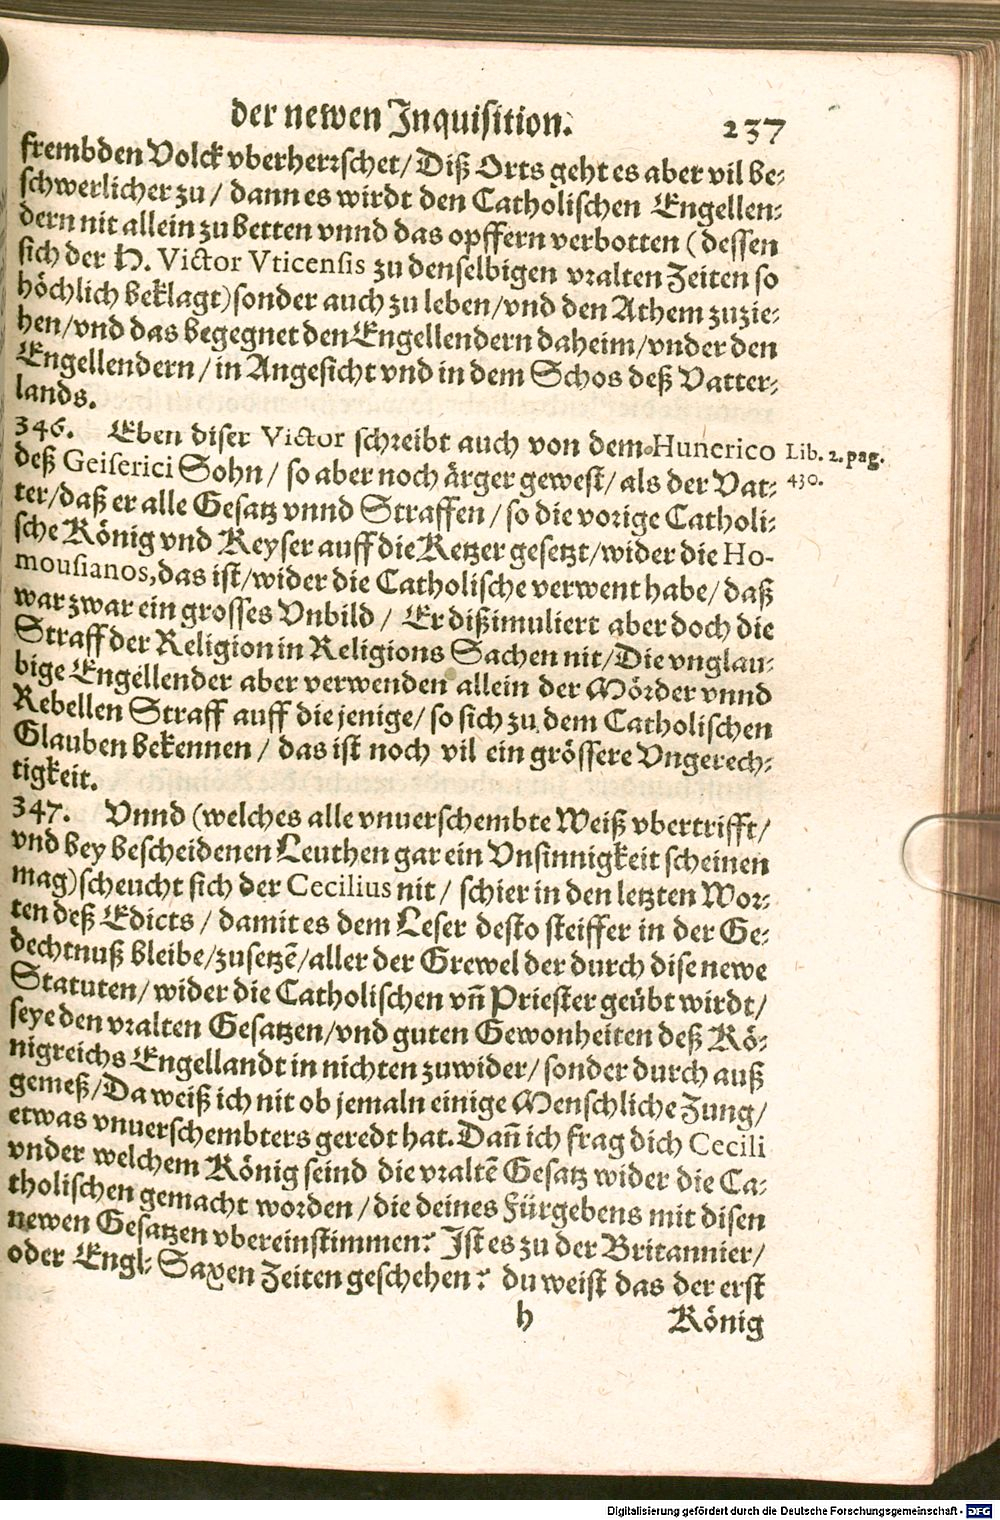 der newen Inquisition. 237
frembden Volck vberherrschet/ Diß Orts geht es aber vil be-
schwerlicher zu/ dann es wirdt den Catholischen Engellen-
dern nit allein zu betten vnnd das opffern verbotten (dessen
sich der H. Victor Vticensis zu denselbigen vralten Zeiten so
höchlich beklagt) sonder auch zu leben/ vnd den Athem zuzie-
hen/ vnd das begegnet den Engellendern daheim/ vnder den
Engellendern/ in Angesicht vnd in dem Schos deß Vatter-
lands.
346. Eben diser Victor schreibt auch von dem Hunerico Lib. 2. pag.
deß Geiserici Sohn/ so aber noch ärger gewest/ als der Vat- 430.
ter/ daß er alle Gesatz vnnd Straffen/ so die vorige Catholi-
sche König vnd Keyser auff die Ketzer gesetzt/ wider die Ho-
mousianos, das ist/ wider die Catholische verwent habe/ daß
war zwar ein grosses Vnbild/ Er dißimuliert aber doch die
Straff der Religion in Religions Sachen nit/ Die vnglau-
bige Engellender aber verwenden allein der Mörder vnnd
Rebellen Straff auff die jenige/ so sich zu dem Catholischen
Glauben bekennen/ das ist noch vil ein grössere Vngerech-
tigkeit.
347. Vnnd (welches alle vnuerschembte Weiß vbertrifft/
vnd bey bescheidenen Leuthen gar ein Vnsinnigkeit scheinen
mag) scheucht sich der Cecilius nit/ schier in den letzten Wor-
ten deß Edicts/ damit es dem Leser desto steiffer in der Ge-
dechtnuß bleibe/ zusetzē/ aller der Grewel der durch dise newe
Statuten/ wider die Catholischen vn̄ Priester geübt wirdt/
seye den vralten Gesatzen/ vnd guten Gewonheiten deß Kö-
nigreichs Engellandt in nichten zuwider/ sonder durch auß
gemeß/ Da weiß ich nit ob jemaln einige Menschliche Zung/
etwas vnuerschembters geredt hat. Dan̄ ich frag dich Cecili
vnder welchem König seind die vraltē Gesatz wider die Ca-
tholischen gemacht worden/ die deines Fürgebens mit disen
newen Gesatzen vbereinstimmen? Ist es zu der Britannier/
oder Engl: Saxen Zeiten geschehen? du weist das der erst
h König
Digitalisierung gefördert durch die Deutsche Forschungsgemeinschaft - DFG